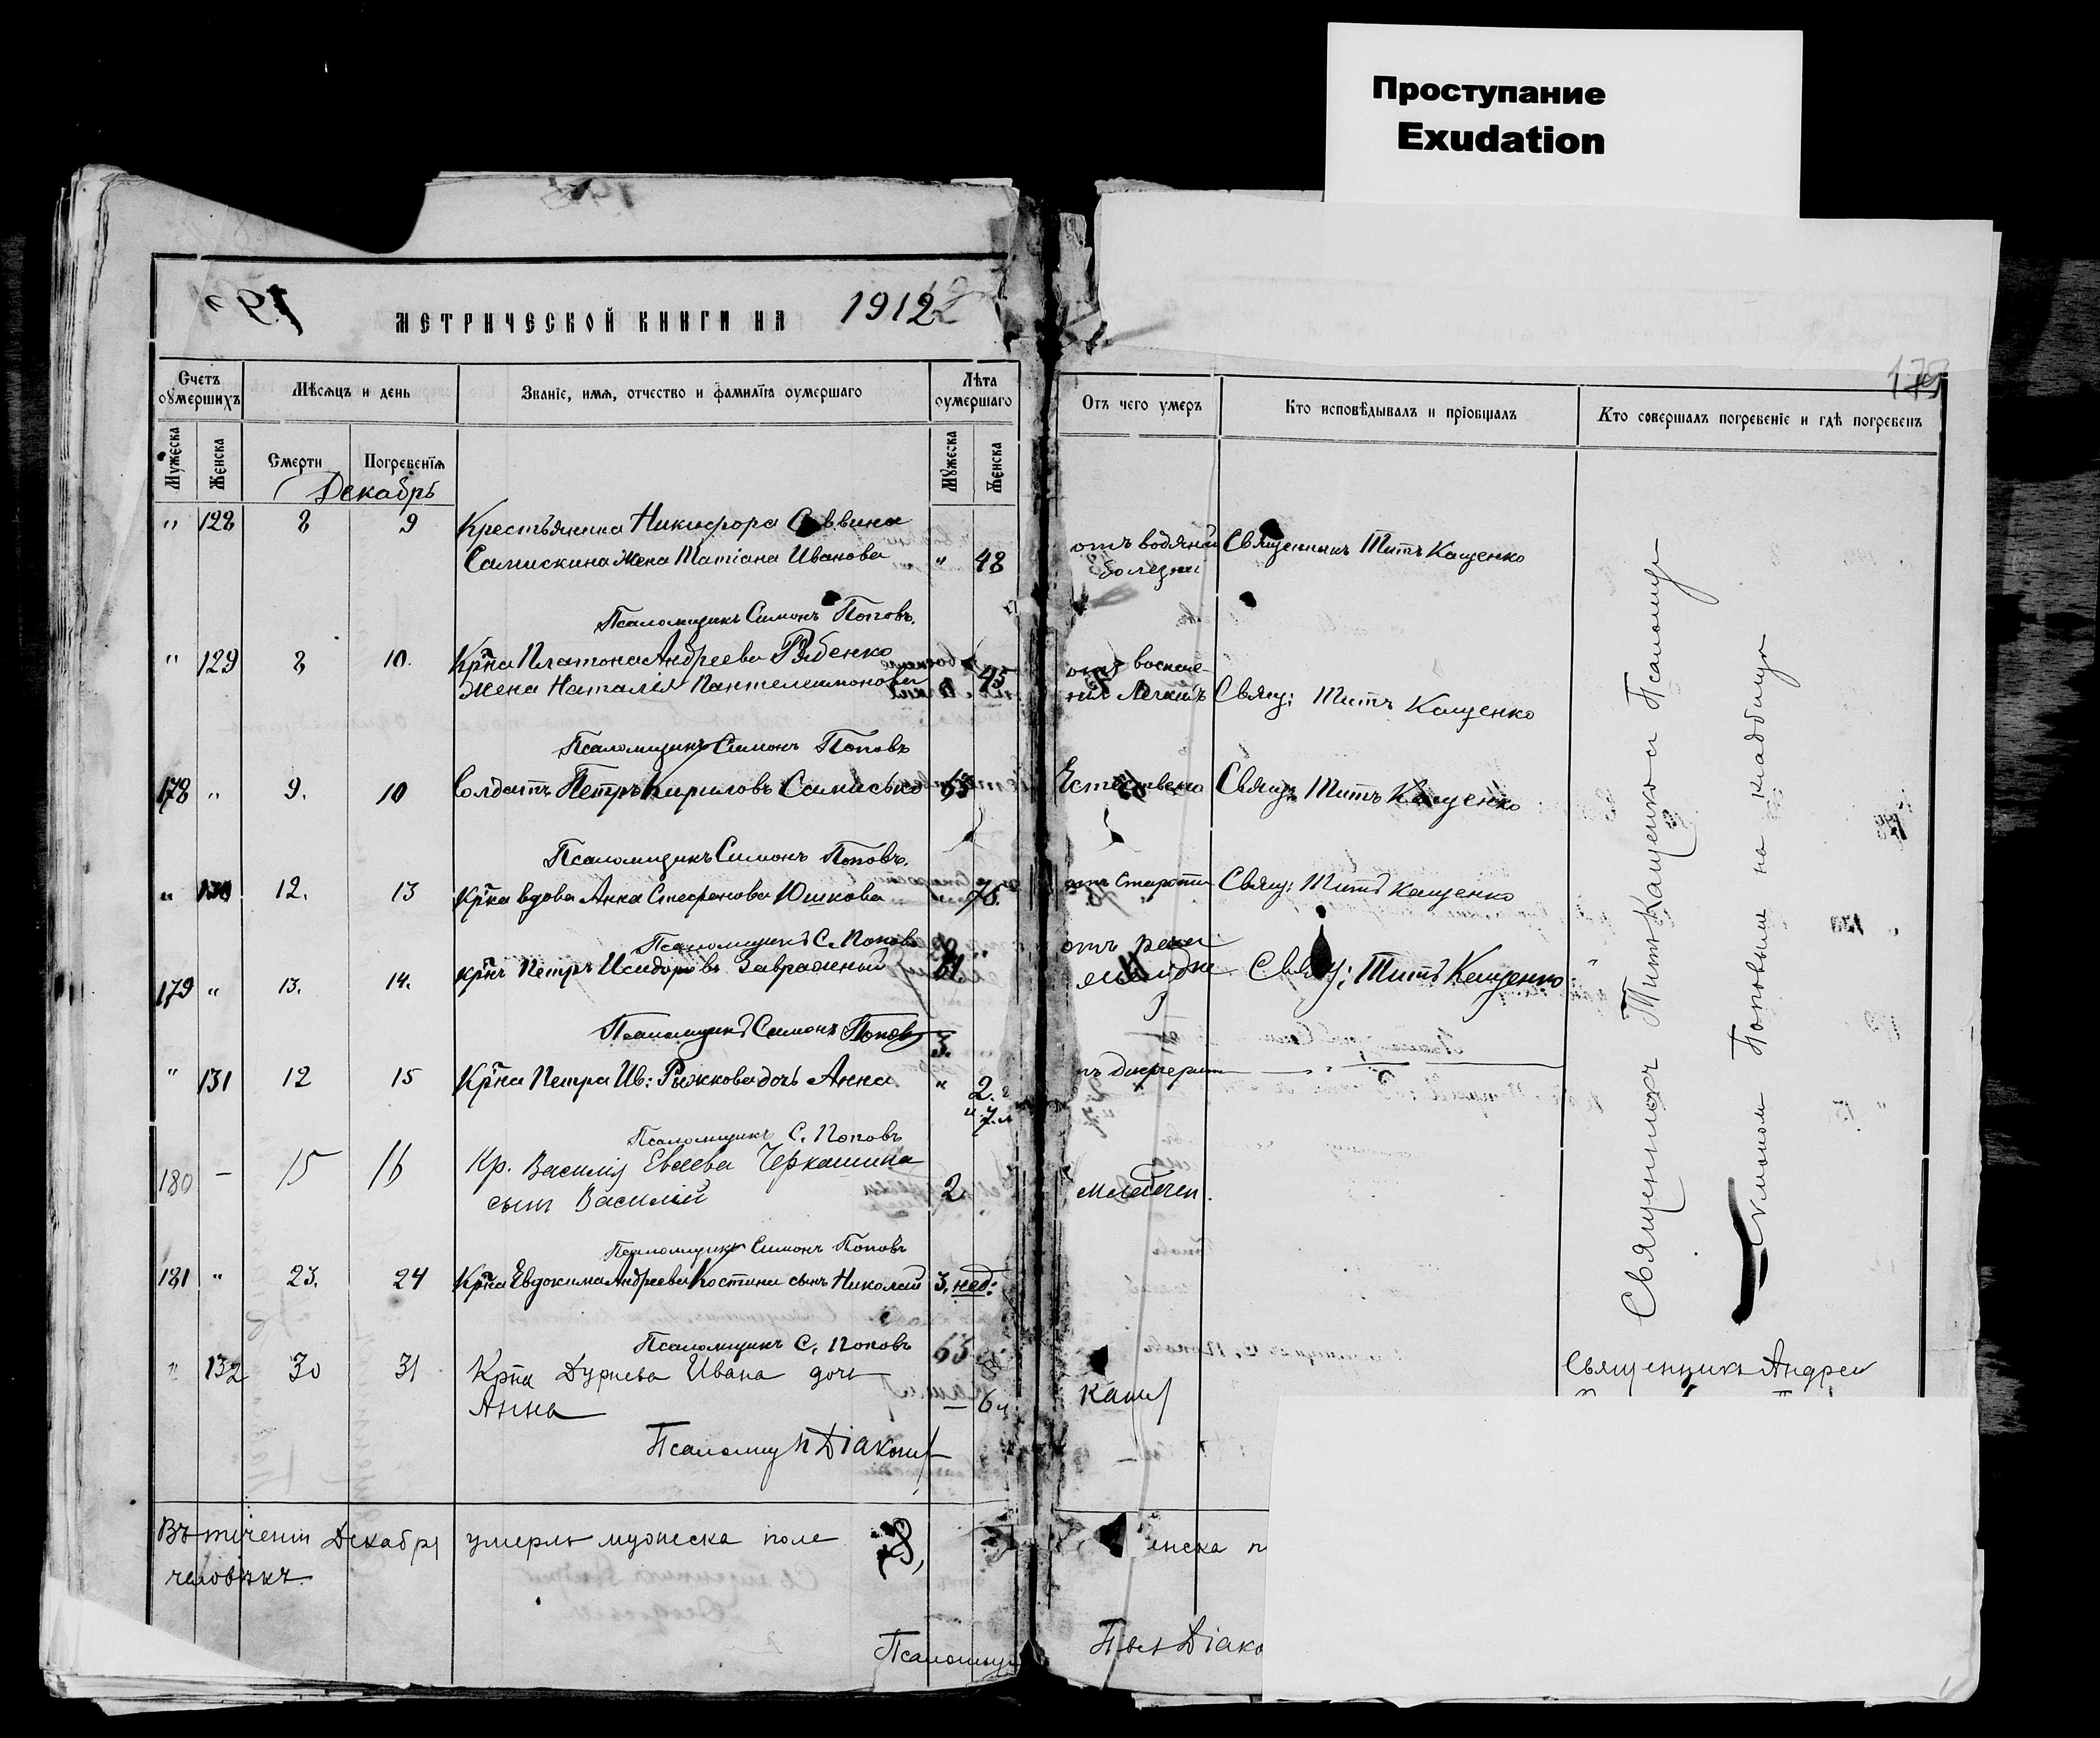 Проступание
Exudation
МЕТРИЧЕСКОЙ КНИГИ НА 1912
Счетъ оумершихъ
Мѣсяцъ и день
Званіе, имя, отчество и фамилія оумершаго
Лѣта оумершаго
Отъ чего умеръ
Кто исповѣдывалъ и пріобщалъ
Кто совершалъ погребеніе и гдѣ погребенъ
Мужеска
Женска
Смерти
Погребенія
Мужеска
Женска
Декабрь
" 128 8 9 Крестьянина Никифора Саввина
Самискина жена Татіана Иванова " 48 отъ водяной болезни Священникъ Титъ Кащенко
Псаломщикъ Симонъ Поповъ.
" 129 8 10. Кр̃на Платона Андреева Рябенко
жена Наталія Пантелеимонова 45 отъ воспале-
нія легкихъ Свящ: Титъ Кащенко
Псаломщикъ Симонъ Поповъ
178 " 9. 10 Солдатъ Петръ Кириловъ Самисько 65 Естествено Свящ: Титъ Кащенко
Псаломщикъ Симонъ Поповъ.
" 130 12. 13 Кр̃ка вдова Анна Стефанова Юшкова 75. отъ старости Свящ: Титъ Кащенко
Псаломщикъ С. Поповъ
179 " 13. 14. кр̃нъ Петръ Исидоровъ Завражный 61 отъ рака Свящ: Титъ Кащенко
Псаломщикъ Симонъ Поповъ
" 131 12 15 Кр̃на Петра Ив: Рыжкова дочь Анна " 2. г. и 7. м. дифтерит
Псаломщикъ С. Поповъ
180 — 15 16 Кр. Василія Евсеева Черкашина
сынъ Василій 2 младенч.
Псаломщикъ Симонъ Поповъ
181 " 23. 24 Кр̃на Евдокима Андреева Костина сынъ Николай 3. нед:
Псаломщикъ С. Поповъ
" 132 30 31 Кр̃на Дурнева Ивана дочь
Анна 6 м. кашл
Псаломщ Діакон
Священникъ Титъ Кащенко и Псаломщи-
Симоном Поповым на кладбище
Священникъ Андрей
Въ теченіи Декабря умерло мужеска поле 8, енска п
человѣкъ.
Псаломщ Діако